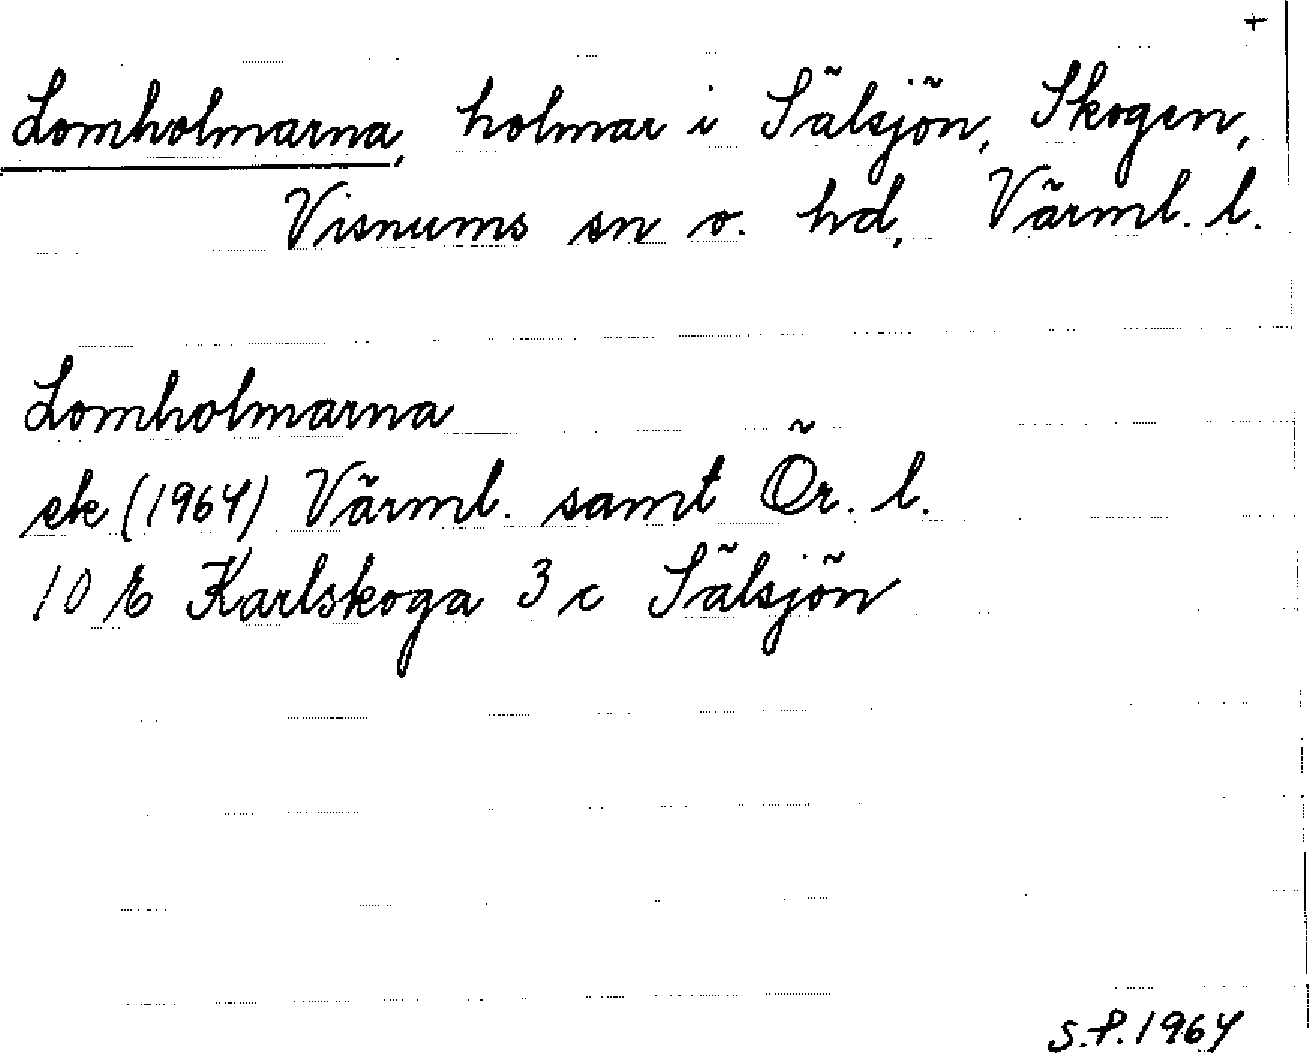 +
Lomholmarna, holmar i Sälsjön, Skogen,
Visnums sn o. hd, Värml. l.
Lomholmarna
ek (1964) Värml. samt Ör. l.
10 E Karlskoga 3 c Sälsjön
S.P. 1964